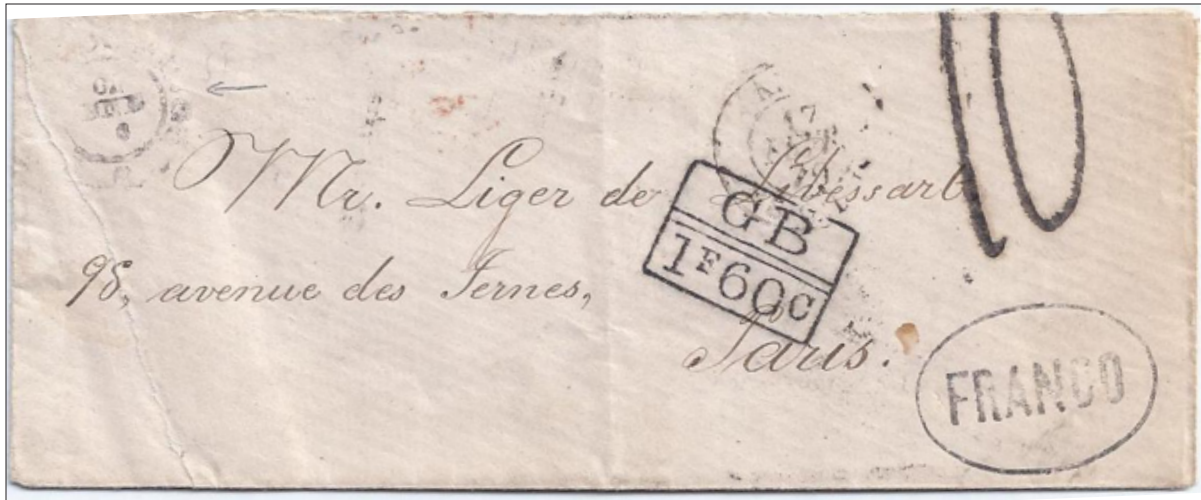 10
Mr. Liger de Libessart
GB
1F60C
98, avenue des Ternes,
Paris.
FRANCO